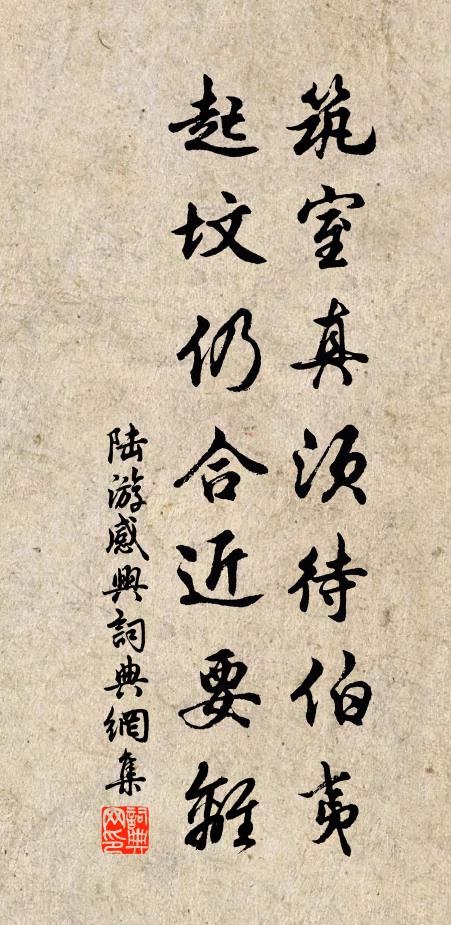 筑室真須待伯夷
起坟仍合近要離
陆游感興詞典網集
詞典网印